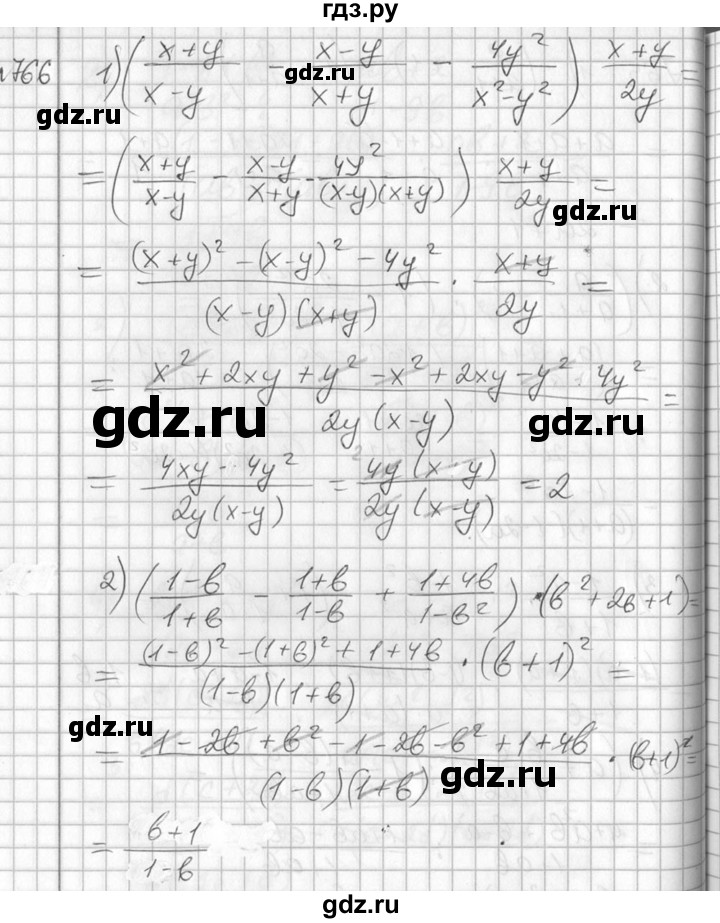 гдз.ру
№766 1) ((x+y)/(x−y) − (x−y)/(x+y) − 4y²/(x²−y²)) (x+y)/(2y) =
gdz.ru
gdz.ru
= ((x+y)/(x−y) − (x−y)/(x+y) − 4y²/((x−y)(x+y))) (x+y)/(2y) =
gdz.ru
= ((x+y)² − (x−y)² − 4y²)/((x−y)(x+y)) · (x+y)/(2y) =
= (x² + 2xy + y² − x² + 2xy − y² · 4y²)/(2y(x−y)) =
gdz.ru
gdz.ru
= (4xy − 4y²)/(2y(x−y)) = (4y(x−y))/(2y(x−y)) = 2
2) ((1−b)/(1+b) − (1+b)/(1−b) + (1+4b)/(1−b²)) · (b²+2b+1) =
= ((1−b)² − (1+b)² + 1+4b)/((1−b)(1+b)) · (b+1)² =
gdz.ru
= (1 − 2b + b² − 1 − 2b − b² + 1 + 4b)/((1−b)(1+b)) · (b+1)² =
gdz.ru
= (b+1)/(1−b)
гдз.ру